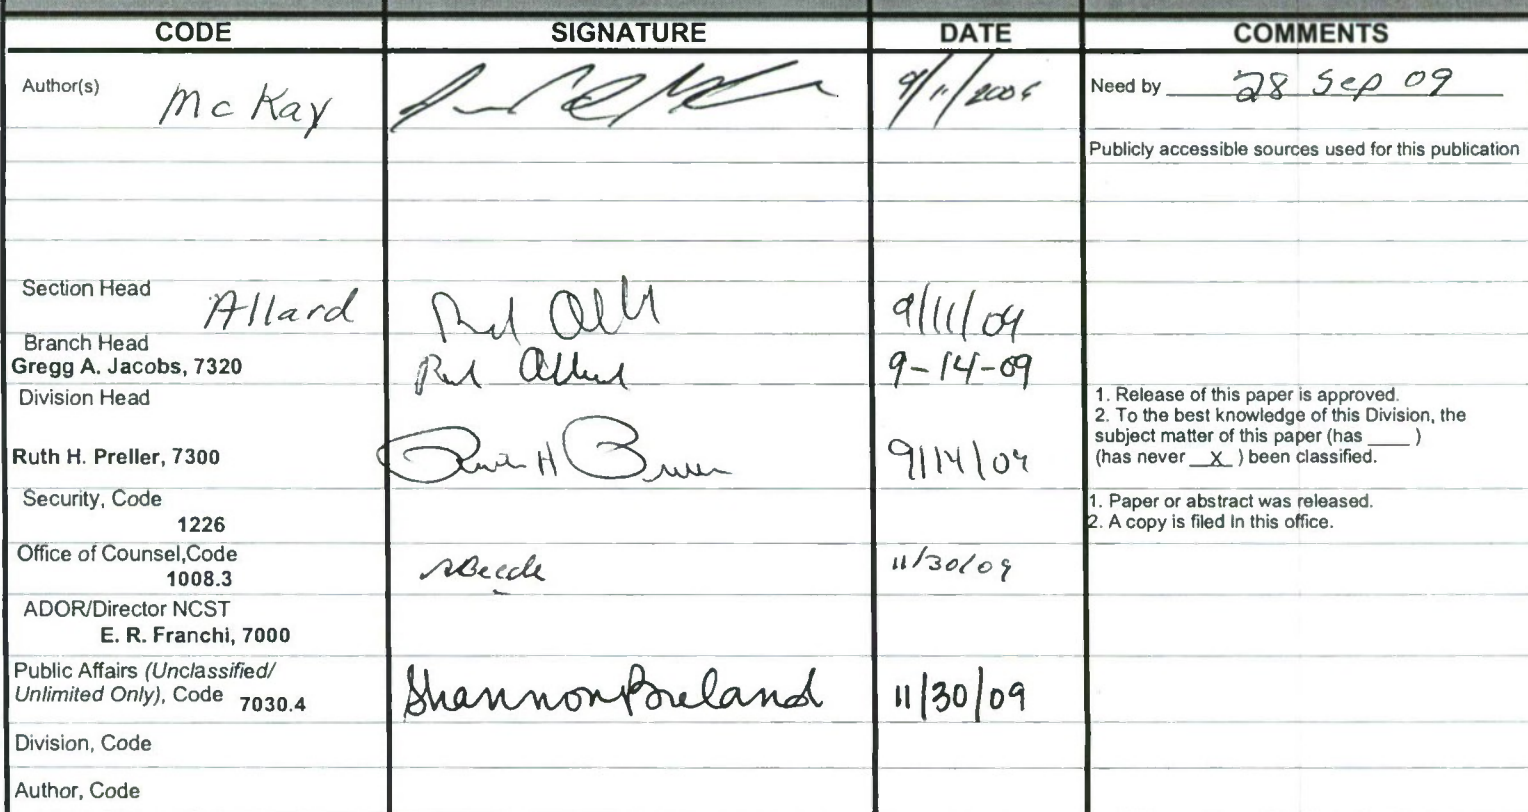 CODE SIGNATURE DATE COMMENTS
Author(s) McKay 9/11/2009 Need by 28 Sep 09
Publicly accessible sources used for this publication
Section Head Allard 9/11/09
Branch Head
Gregg A. Jacobs, 7320 9-14-09
Division Head
1. Release of this paper is approved.
2. To the best knowledge of this Division, the
subject matter of this paper (has ____ )
Ruth H. Preller, 7300 9/14/09 (has never __X_ ) been classified.
Security, Code
1226
1. Paper or abstract was released.
2. A copy is filed In this office.
Office of Counsel,Code
1008.3 11/30/09
ADOR/Director NCST
E. R. Franchi, 7000
Public Affairs (Unclassified/
Unlimited Only), Code 7030.4 Shannon Breland 11/30/09
Division, Code
Author, Code